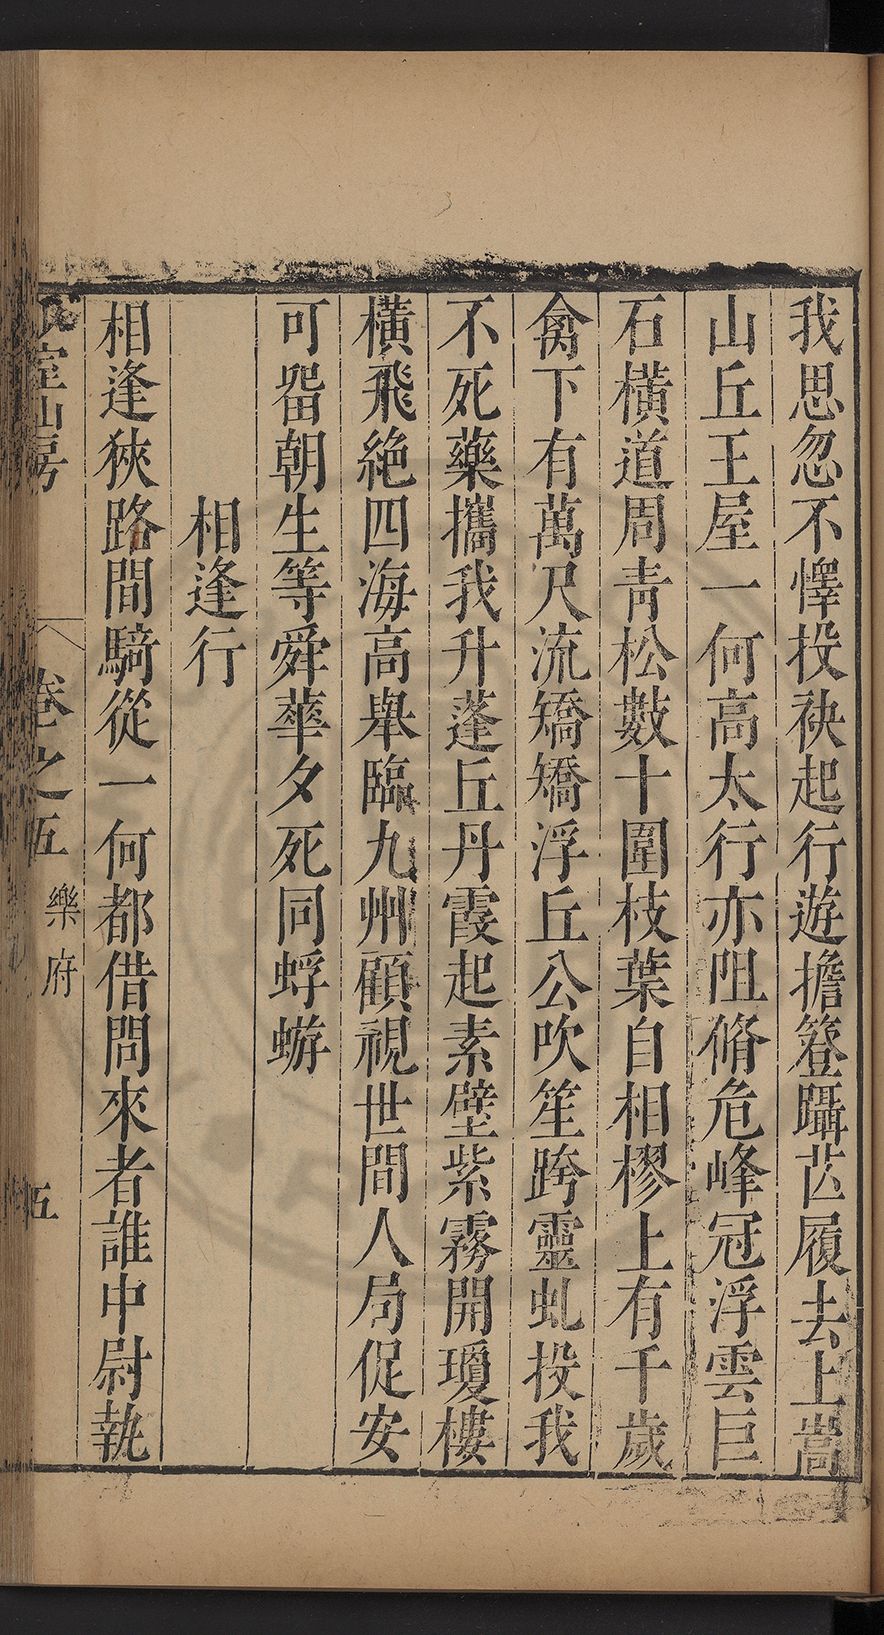 我思忽不懌投袂起行遊擔簦躡芒履去上嵩
山丘王屋一何高太行亦阻脩危峰冠浮雲巨
石橫道周青松數十圍枝葉自相樛上有千歲
禽下有萬尺流矯矯浮丘公吹笙跨靈虬投我
不死藥攜我升蓬丘丹霞起素壁紫霧開瓊樓
橫飛絕四海高舉臨九州顧視世間人局促安
可留朝生等舜華夕死同蜉蝣
相逢行
相逢狹路間騎從一何都借問來者誰中尉執
室山房
卷之五 樂府
五